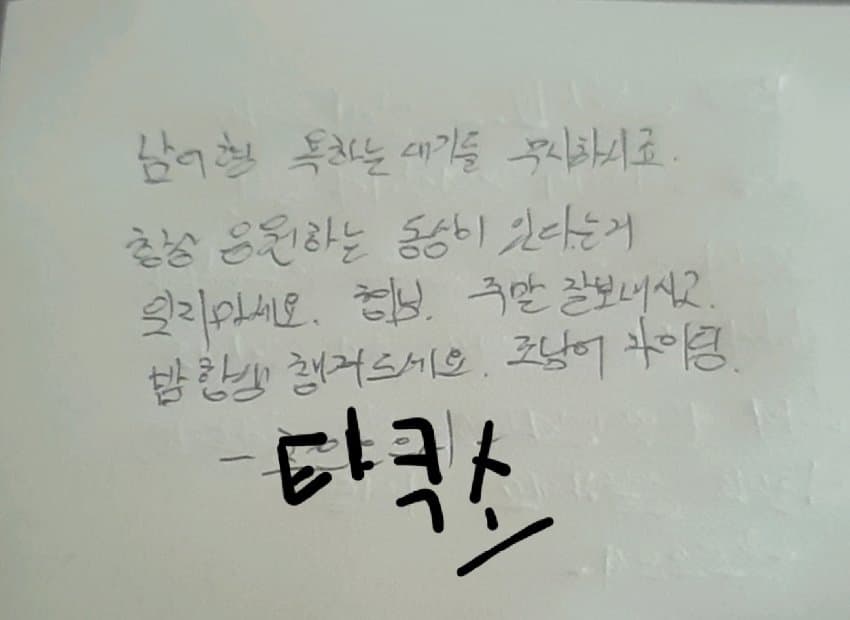 남어형 욕하는 애기들 무시하시고.
항상 응원하는 동생이 있다는거
잊지마세요. 형님. 주말 잘보내시고.
밥 항상 챙겨드세요. 로남어 파이팅.
타쿽스